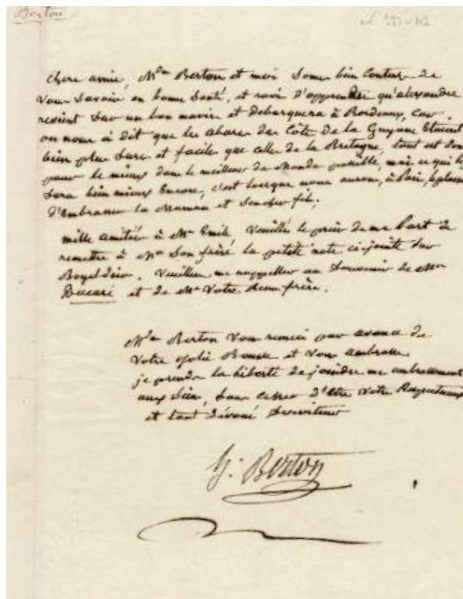 Berton
Chere amie, Mde Berton et moi some bien Contens de
vous Savoir en bonne Santé, et ravi d'apprendre qu'alexandre
revient Sur un bon navire et debarquera à Bordeaux, Car
on nous à dit que les abore des Côte de la Guyane Etoient
bien plus Sure et facile que celle de la Bretagne, tout est donc
pour le mieux dans le meilleur des Monde possible, mais ce qui
Sera bien mieux Encore, c'est lorsque nous aurons, à Paris, le plaisir
d'Embrasser la Maman et Son cher fils.
mille amitiés à Mr Emile. Veuillés le prier de ma Part de
remettre à Mr Son frère la petite note ci-jointe Sur
. Veuillez me rappeller au Souvenir de Mme
Ducaré et de Mr Votre Beau frère.
Mde Berton Vous remerci par avance de
Votre jolie Bourse et Vous embrasse
je prends la liberté de joindre mes embrassements
aux Sien, San cesser d'être Votre Respectueux
et tout dévoué Serviteur
h. Berton